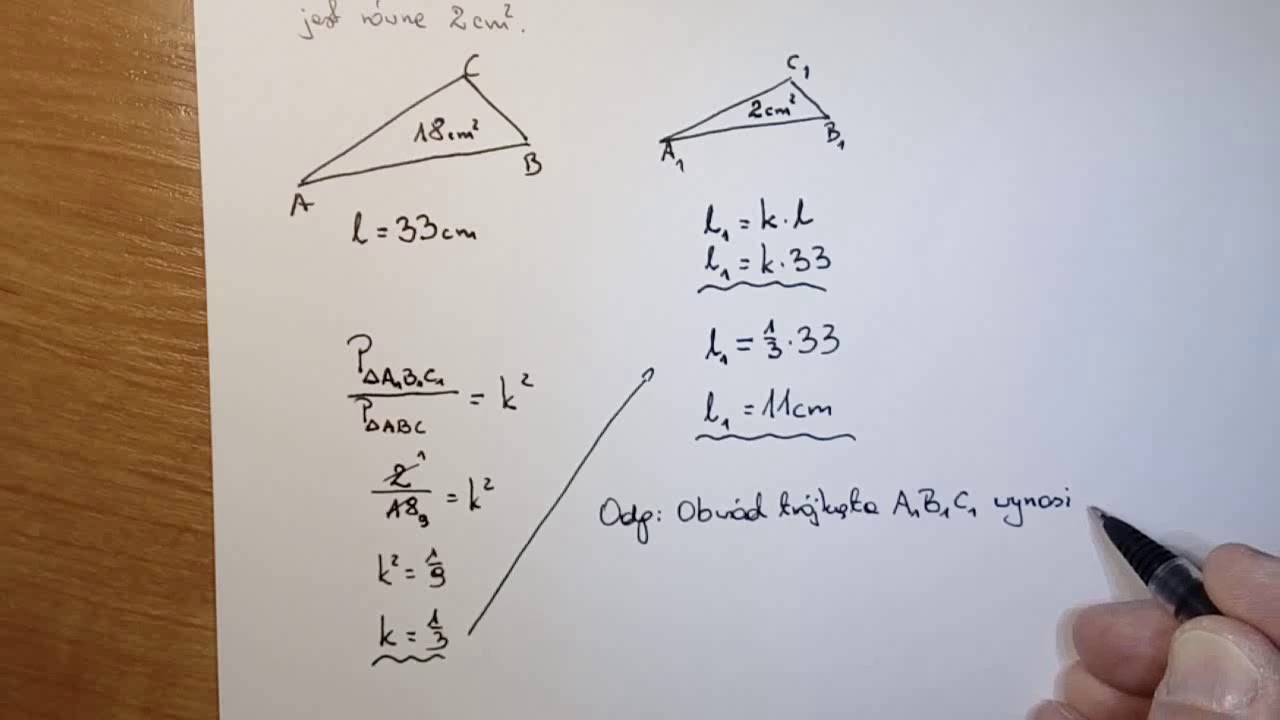 jest równe 2cm².
C
18cm²
B
A
l = 33cm
C₁
2cm²
B₁
A₁
l₁ = k · l
l₁ = k · 33
l₁ = 1/3 · 33
l₁ = 11cm
P△A₁B₁C₁ / P△ABC = k²
2 1 / 18 9 = k²
k² = 1/9
k = 1/3
Odp: Obwód trójkąta A₁B₁C₁ wynosi